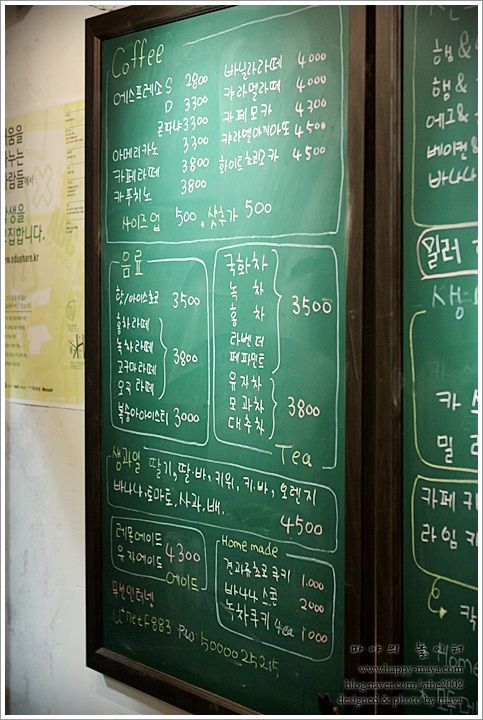 Coffee
에스프레소 S 2800
D 3300
콘파냐 3300
아메리카노 3300
카페라떼 3800
카푸치노 3800
바닐라라떼 4000
카라멜라떼 4000
카페모카 4300
캬라멜마끼아또 4500
화이트초코모카 4500
사이즈업 500, 샷추가 500
음료
핫/아이스초코 3500
홍차라떼
녹차라떼
고구마라떼
요크라떼
3800
복숭아아이스티 3000
국화차
녹차
홍차
라벤더
페파민트
3500
유자차
모과차
대추차
3800
Tea
생과일 딸기, 딸·바, 키위, 키·바, 오렌지
바나나, 토마토, 사과, 배.
4500
레몬에이드
유자에이드
4300
에이드
Home made
견과류초코쿠키 1.000
바나나스콘 2000
녹차쿠키 4ea 1000
무선인터넷
PW: 5000025215
행&
햄&
에그&
베이컨&
바나나
밀러
생
카스
밀러
카페
라임
칵
Home
움을
누는
람들에서
생을
집합니다.
www.edushare.kr
마야의 볼에퍼
www.happy-maya.com
blog.naver.com/sthe2002
designed & photo by maya